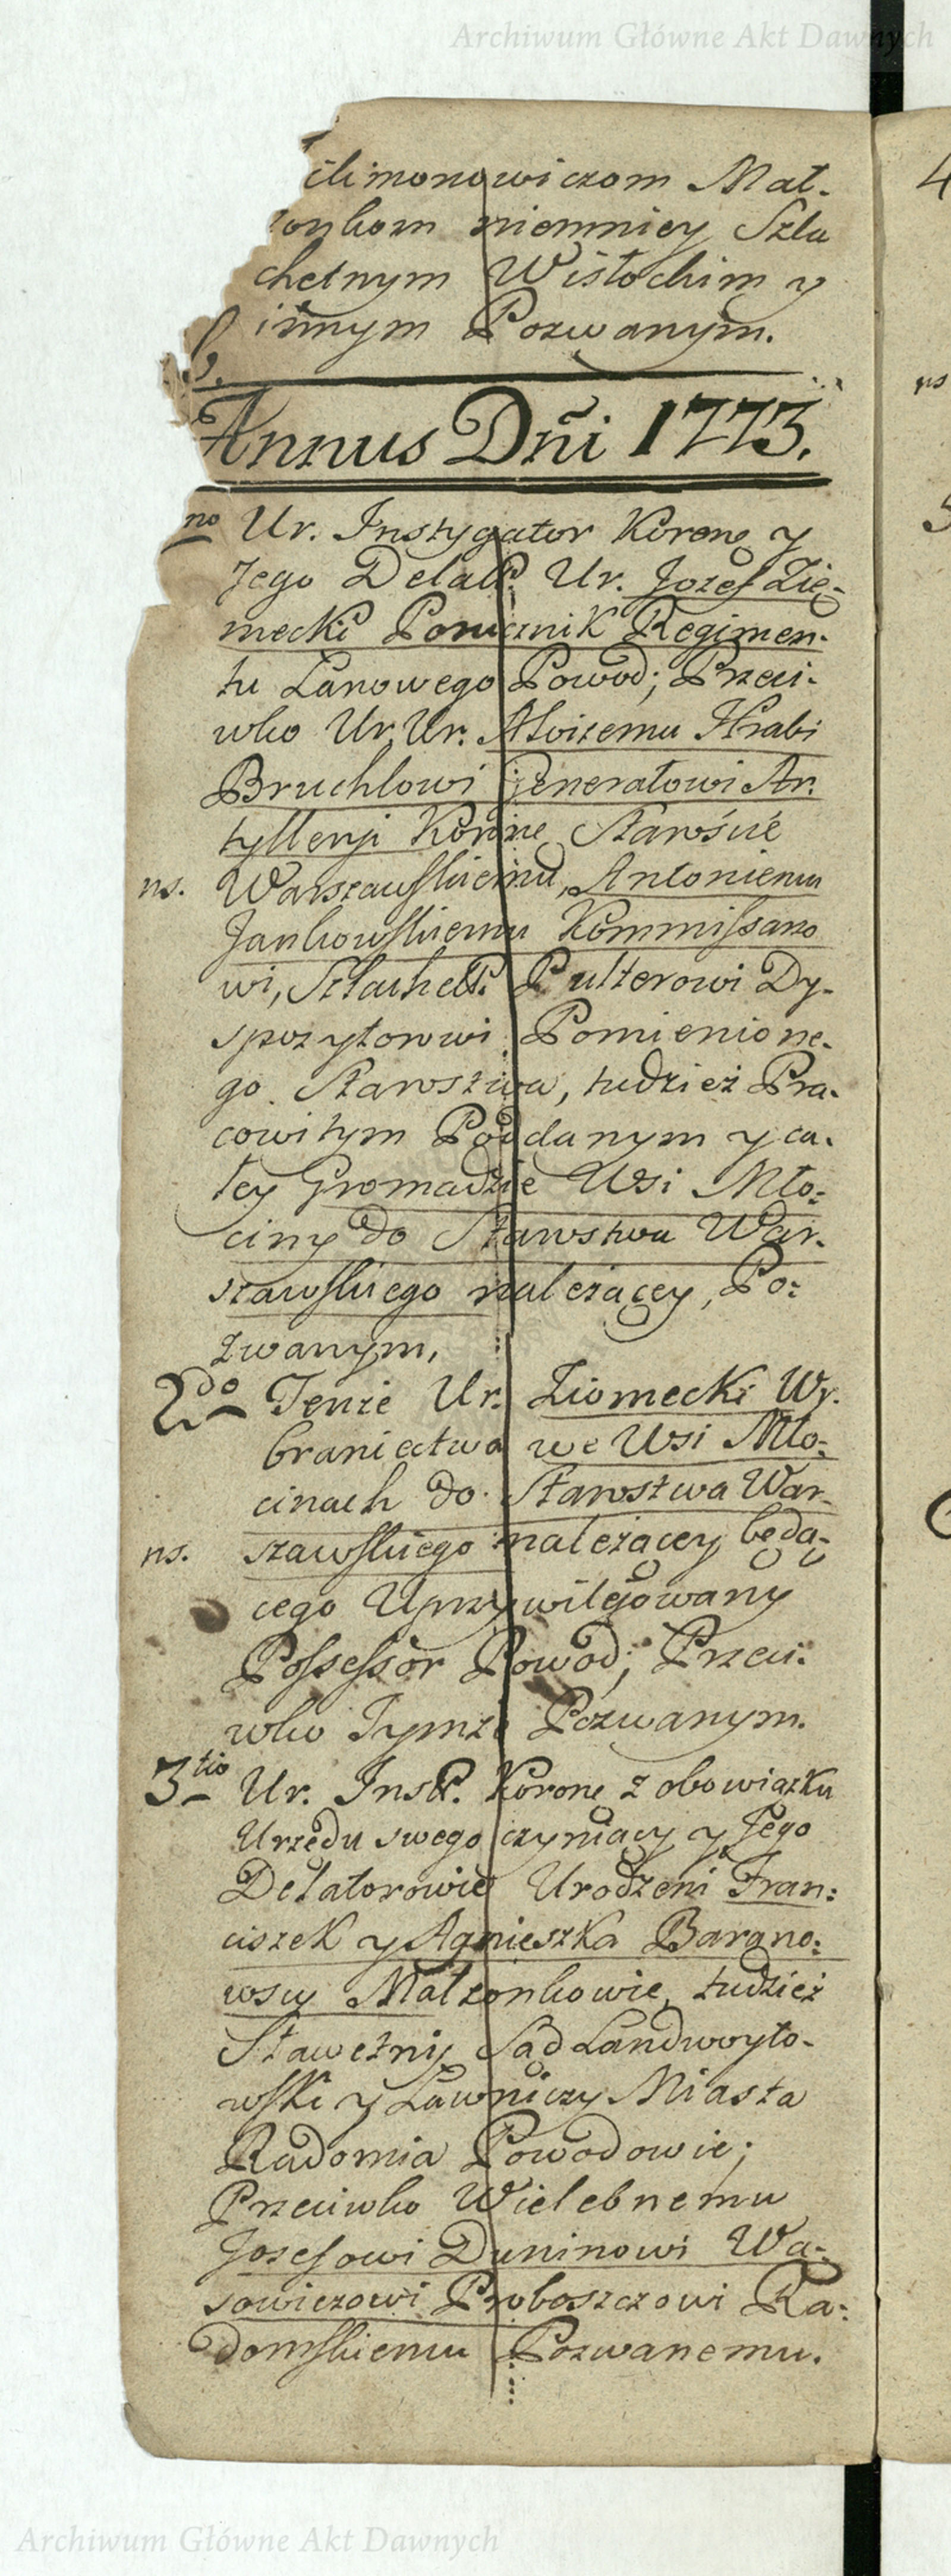 Archiwum Główne Akt Dawnych
ilimonowiczom Mał-
żonkom niemniey Szla
chetnym Wisłockim y
innym Pozwanym.
Annus Dñi 1773.
no Ur. Instygator Koronę y
Jego Delat. Ur. Jozef Zię-
mecki Porucznik Regimen-
tu Łanowego Powod; Przeci-
wko Ur. Ur. Aloizemu Hrabi
Bruchlowi Generałowi Ar-
tylleryi Koronne Staroście
ns. Warszawskiemu, Antoniemu
Jankowskiemu Kommissarzo
wi, Szlachet. Pulterowi Dy-
spozytorowi Pomienione-
go Starostwa, tudzież Pra-
cowitym Poddanym y ca-
łey Gromadzie Wsi Mło-
ciny do Starostwa War-
szawskiego należącey, Po:
zwanym,
2do Tenże Ur. Ziomecki Wy-
braniectwa we Wsi Mło:
cinach do Starostwa War-
ns. szawskiego należącey będą-
cego Uprzywilejowany
Possessor Powod; Przeci-
wko Tymże Pozwanym.
3tio Ur. Inst. Koronę z obowiązku
Urzędu swego czyniący y Jego
Delatorowie Urodzeni Fran:
ciszek y Agnieszka Barano:
wscy Małżonkowie, tudzież
Sławetny Sąd Landwoyto-
wski y Ławniczy Miasta
Radomia Powodowie;
Przeciwko Wielebnemu
Jozefowi Duninowi Wą-
sowiczowi Proboszczowi Ra-
domskiemu Pozwanemu.
Archiwum Główne Akt Dawnych